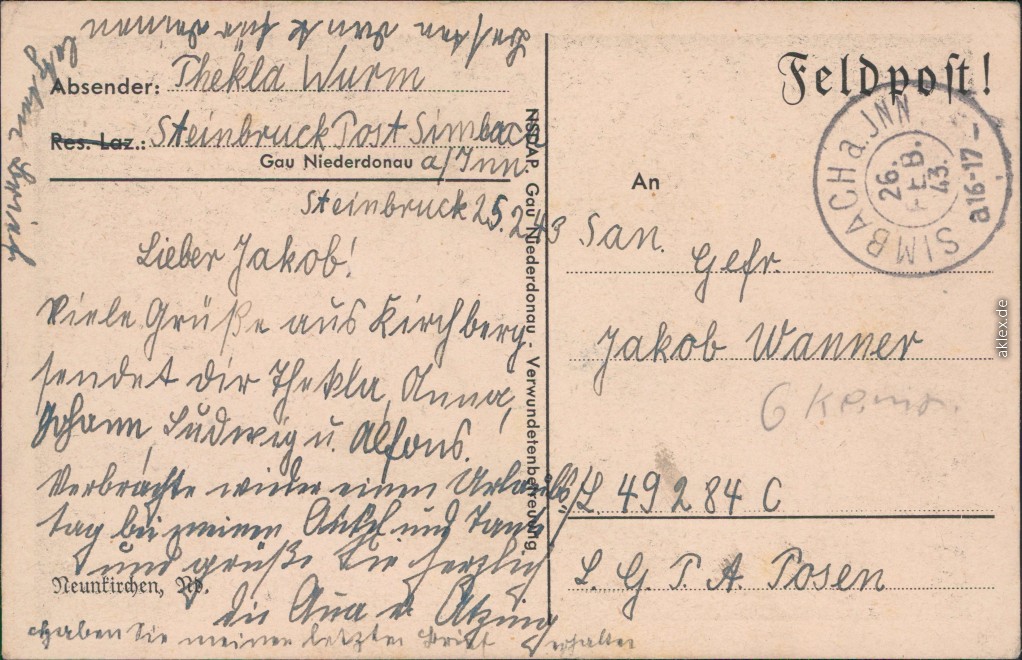 Absender: Thekla Wurm
Res. Laz.: Steinbruck Post Simbach
Gau Niederdonau a/Inn.
Steinbruck 25.2.43
Lieber Jakob!
Viele Grüße aus Kirchberg
sendet dir Thekla, Anna,
Johann, Ludwig u. Alfons.
Verbrachte wieder einen Urlaubs
tag bei meinen und Tante
und grüße Sie herzlich
die
Neunkirchen, Nd.
haben Sie meinen letzten Brief erhalten
NSDAP. Gau Niederdonau - Verwundetenbetreuung
Feldpost!
SIMBACH a. INN
26. FEB. 43. a16-17
An
San. Gefr.
Jakob Wanner
L 49284 C
L. G. P. A. Posen
aklex.de